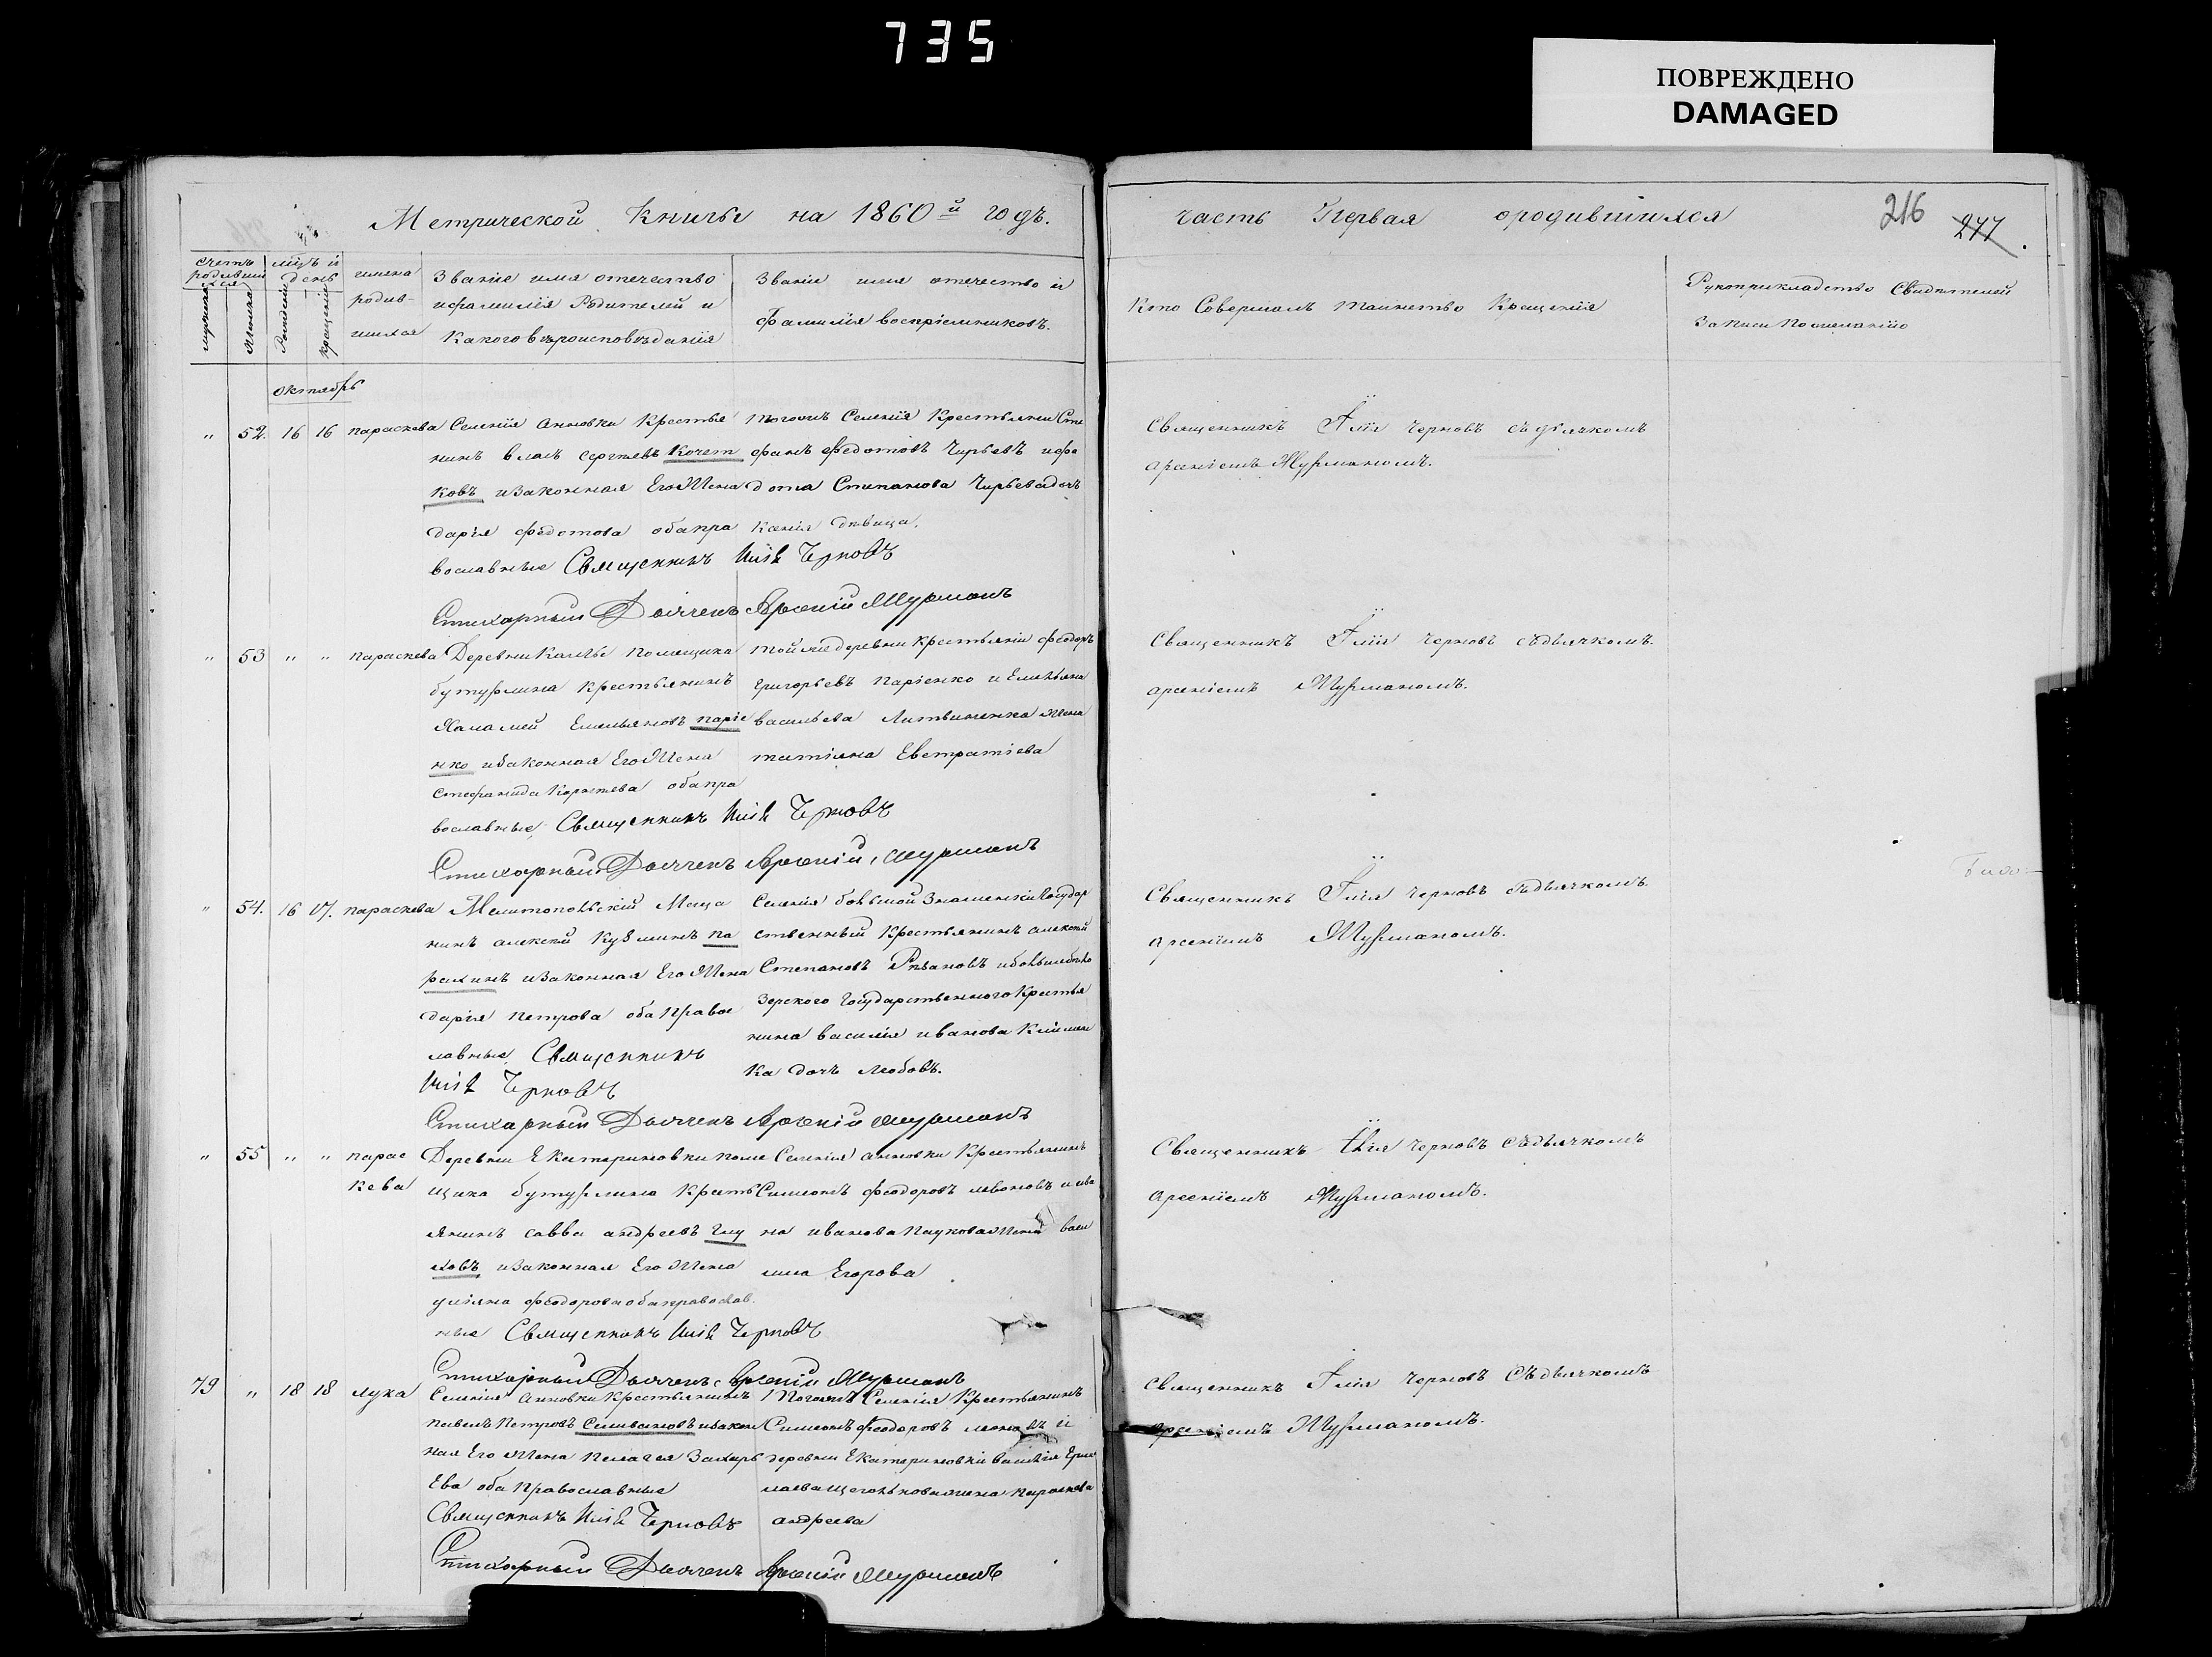 735
ПОВРЕЖДЕНО
DAMAGED
Метрической Книгѣ на 1860й годъ.
часть Первая ородившихся
216
277
счетъ родившихся
мцъ и день
имена родившихся
Званіе имя отечество
ифамилія Родителей и
Какого вѣроисповѣданія
Званіе имя отечество и
Фамилія воспріемниковъ.
Кто Совершалъ таинство Крещенія
Рукоприкладство Свидѣтелей
Записи По желанію
мужеска
женска
Рожденія
крещенія
октябрь
" 52. 16 16 параскева
Селенія Анновки Крестья
нинъ власъ сергѣевъ Кочет
ковъ изаконная Его Жена
дарія федотова оба пра
вославные Священникъ Илія Черновъ
Стихарный Дьячекъ Арсеній Мурманъ
тогожъ Селенія Крестьянин Сте
фанъ федотовъ Чирьевъ ифе
дота Степанова Чирьева дочь
Ксенія дѣвица.
Священникъ Илія Черновъ съ дьячкомъ
арсеніемъ Мурманомъ.
" 53 " " параскева
Деревни Калги помещика
бутурлина крестьянинъ
Емельяновъ паріе
нко изаконная Его Жена
стефанида Корнѣева оба пра
вославные Священникъ Илія Черновъ
Стихарный Дьячекъ Арсеній Мурманъ
тойже деревни крестьянин феодоръ
Григорьевъ паріенко и Емельяна
васильева Литвиненка жена
татіяна Евстратіева
Священникъ Илія Черновъ съдьячкомъ.
арсеніемъ Мурманомъ.
" 54. 16 17. параскева
Мелитопольскій Меща
нинъ алексей Кузминъ па
рахинъ изаконная Его Жена
дарія петрова оба Правос
лавные Священникъ
Илія Черновъ
Стихарный Дьячекъ Арсеній Мурманъ
Селенія большой Знаменки Государ
ственный Крестьянинъ алексей
Степановъ Рязановъ
зерского Государственного Крестья
нина василія иванова Клímен
ка дочь Любовь.
Священникъ Илія Черновъ съдьячкомъ.
арсеніемъ Мурманомъ.
" 55 " " парас
кева
Деревни Екатериновки поме
щика бутурлина Кресть
янинъ савва андреевъ Глу
ховъ изаконная Его Жена
уліяна феодорова оба православ.
ные Священникъ Илія Черновъ
Стихарный Дьячекъ Арсеній Мурманъ
Селенія анновки Крестьянинъ
Симеонъ феодоровъ левоновъ и ива
на иванова Паукова Жена васи
лиса Егорова
Священникъ Илія Черновъ съдьячкомъ
арсеніемъ Мурманомъ.
79 " 18 18 лука
Селенія Анновки Крестьянинъ
павелъ Петровъ Селивановъ изакон
ная Его Жена пелагея Захарь
Ева оба Православные
Священникъ Илія Черновъ
Стихарный Дьячекъ Арсеній Мурманъ
Тогожъ Селенія Крестьянинъ
Симеонъ феодоровъ и
деревни Екатериновки василія Ерм
лаева Щегольнова жена параскева
андреева
Священникъ Илія Черновъ Съдьячкомъ
арсеніемъ Мурманомъ.